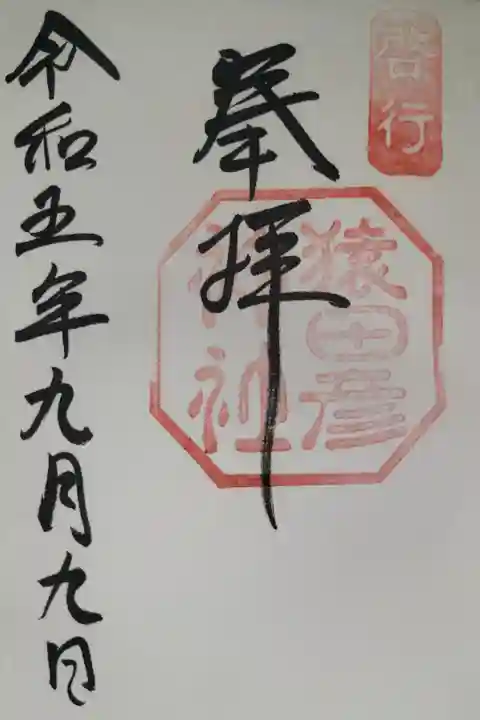 啓行
奉拝
猿田彦
神社
令和五年九月九日